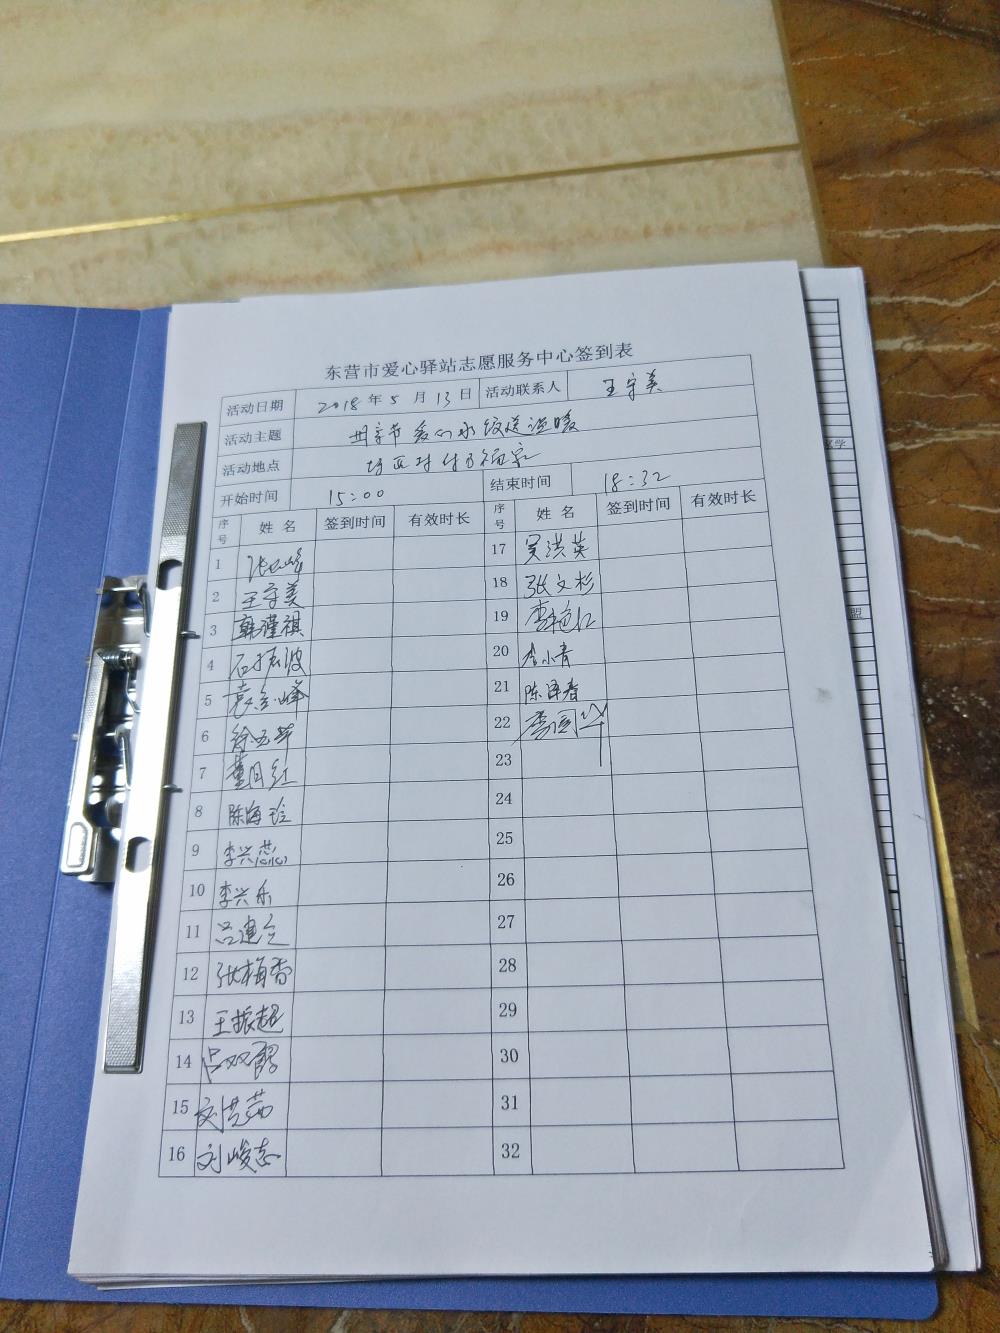 东营市爱心驿站志愿服务中心签到表
活动日期 2018 年 5 月 13 日 活动联系人 王守美
活动主题 母亲节 爱心水饺送温暖
活动地点
开始时间 15:00 结束时间 18:32
序号 姓名 签到时间 有效时长 序号 姓名 签到时间 有效时长
1 17 吴洪英
2 王守美 18 张文杉
3 韩瑾祺 19 李艳红
4 石振波 20 李小青
5 袁金峰 21 陈泽春
6 徐玉苹 22 李国华
7 董月红 23
8 陈海玲 24
9 李兴蕊 25
10 李兴乐 26
11 吕建立 27
12 张梅香 28
13 王振超 29
14 吕双 30
15 刘芸茹 31
16 刘峻志 32